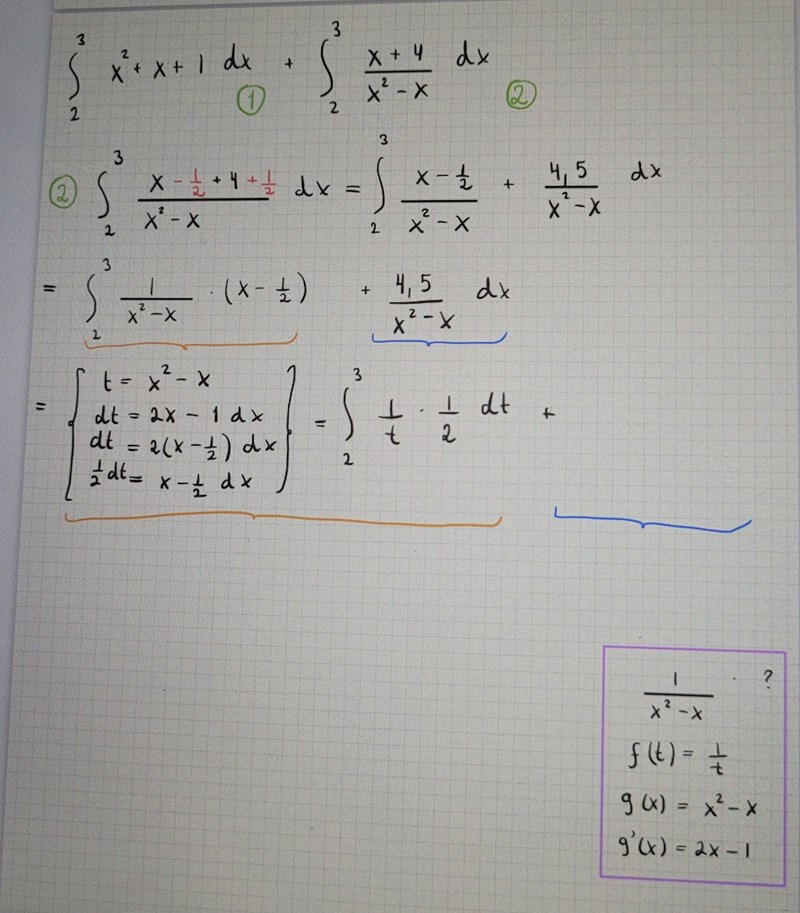 ∫₂³ x² + x + 1 dx ① + ∫₂³ (x + 4)/(x² - x) dx ②
② ∫₂³ (x - 1/2 + 4 + 1/2)/(x² - x) dx = ∫₂³ (x - 1/2)/(x² - x) + 4,5/(x² - x) dx
= ∫₂³ 1/(x² - x) · (x - 1/2) + 4,5/(x² - x) dx
= [ t = x² - x
dt = 2x - 1 dx
dt = 2(x - 1/2) dx
1/2 dt = x - 1/2 dx ] = ∫₂³ 1/t · 1/2 dt +
1/(x² - x) · ?
f(t) = 1/t
g(x) = x² - x
g'(x) = 2x - 1